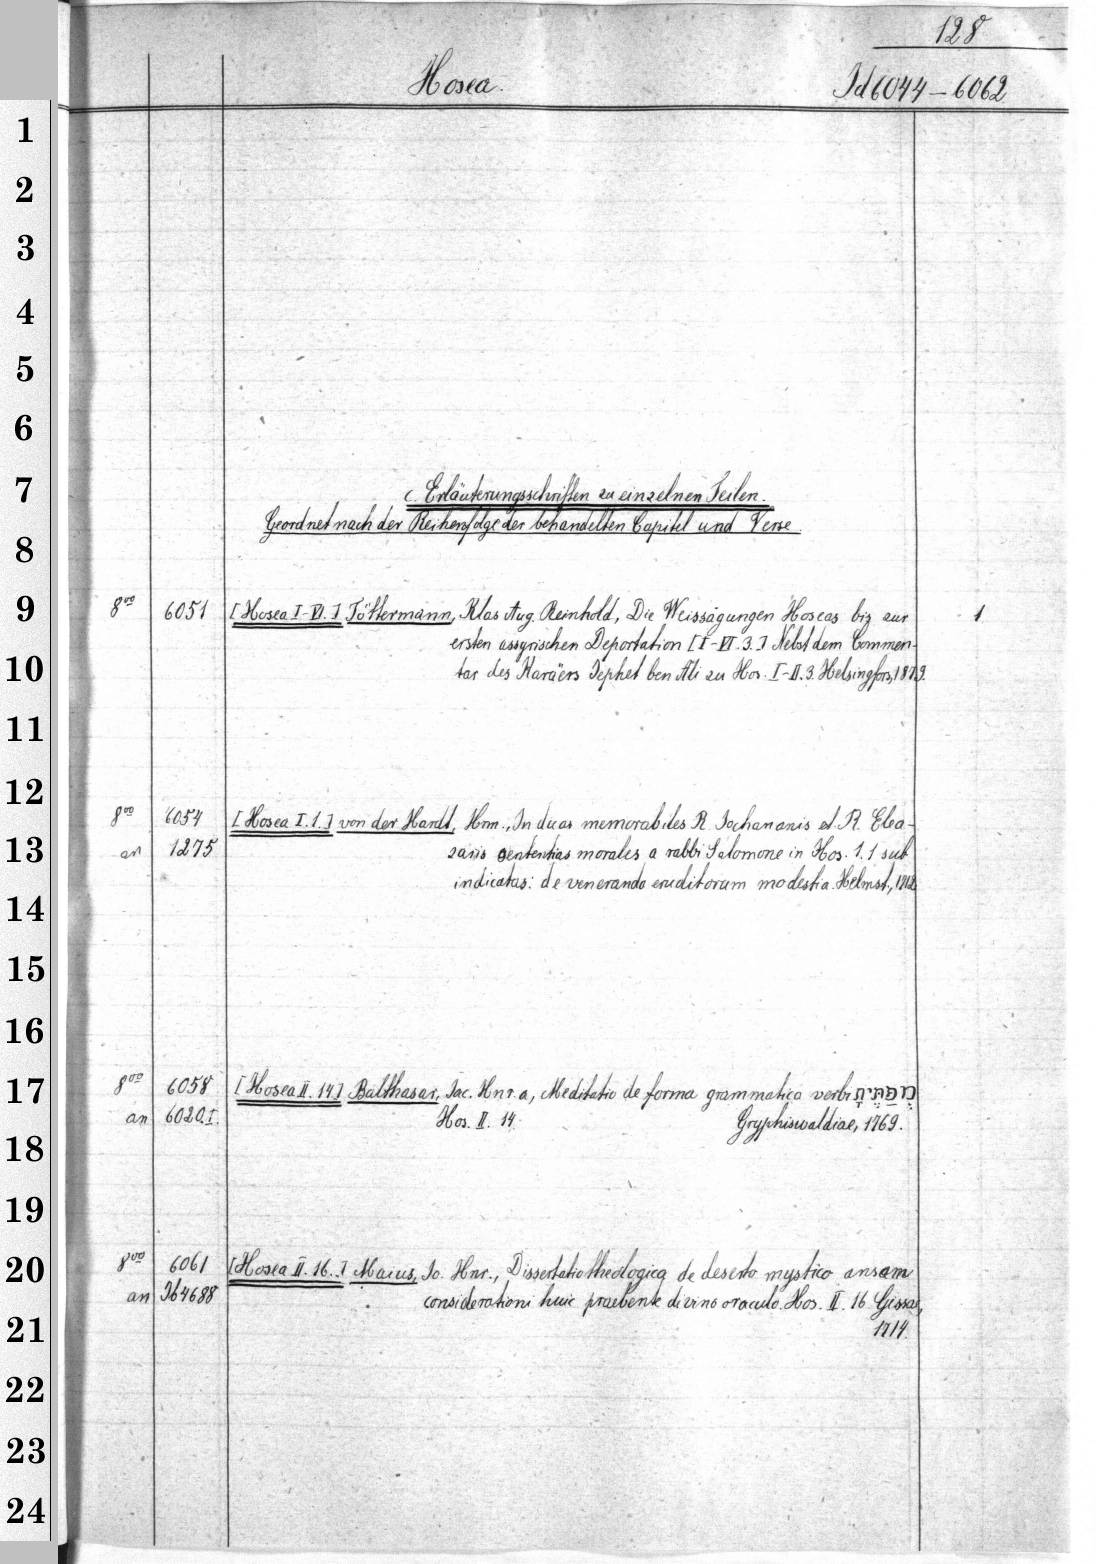 128
Hosea. Id 6044 – 6062
c. Erläuterungsschriften zu einzelnen Teilen.
Geordnet nach der Reihenfolge der behandelten Capitel und Verse
8vo 6051 [Hosea I-VI.] Töttermann, Klas Aug. Reinhold, Die Weissagungen Hoseas bis zur 1
ersten assyrischen Deportation [I-VI.3.] Nebst dem Commen-
tar des Karäers Jephet ben Ali zu Hos. I-II.3. Helsingfors, 1879.
8vo 6054 [Hosea I.1.] von der Hardt, Hrm., In duas memorabiles R. Jochananis et R. Elea-
an 1275 zaris sententias morales a rabbi Salomone in Hos. 1.1 sub
indicatas: de veneranda eruditorum modestia. Helmst.,
8vo 6058 [Hosea II. 14] Balthasar, Jac. Hnr. a, Meditatio de forma grammatica verbi מְפַתֶּיהָ
an 6020.I. Hos. II. 14. Gryphiswaldiae, 1769.
8vo 6061 [Hosea II. 16..] Maius, Jo. Hnr., Dissertatio theologica de deserto mystico ansam
an Ib 4688 considerationi huic praebente divino oraculo. Hos. II. 16. Gissae,
1714.
1
2
3
4
5
6
7
8
9
10
11
12
13
14
15
16
17
18
19
20
21
22
23
24